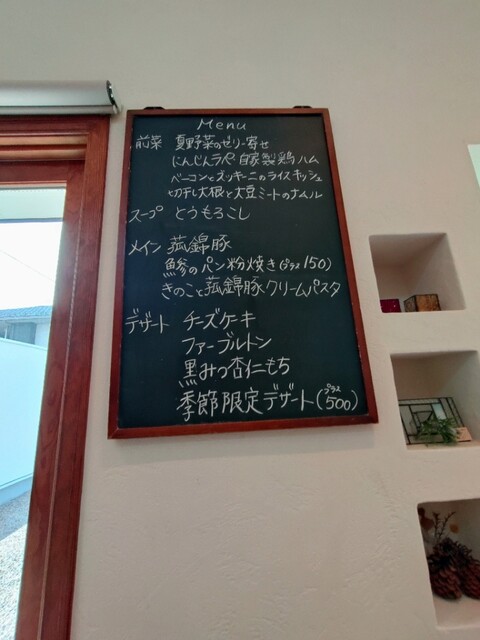 Menu
前菜 夏野菜のゼリー寄せ
にんじんラペ 自家製鶏ハム
ベーコンとズッキーニのライスキッシュ
切干し大根と大豆ミートのナムル
スープ とうもろこし
メイン 菰錦豚
鯵のパン粉焼き(プラス150)
きのこと菰錦豚クリームパスタ
デザート チーズケーキ
ファーブルトン
黒みつ杏仁もち
季節限定デザート(プラス500)